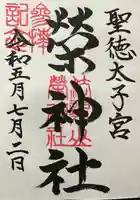 聖徳太子宮
榮神社
參拝
記念
令和五年七月二日